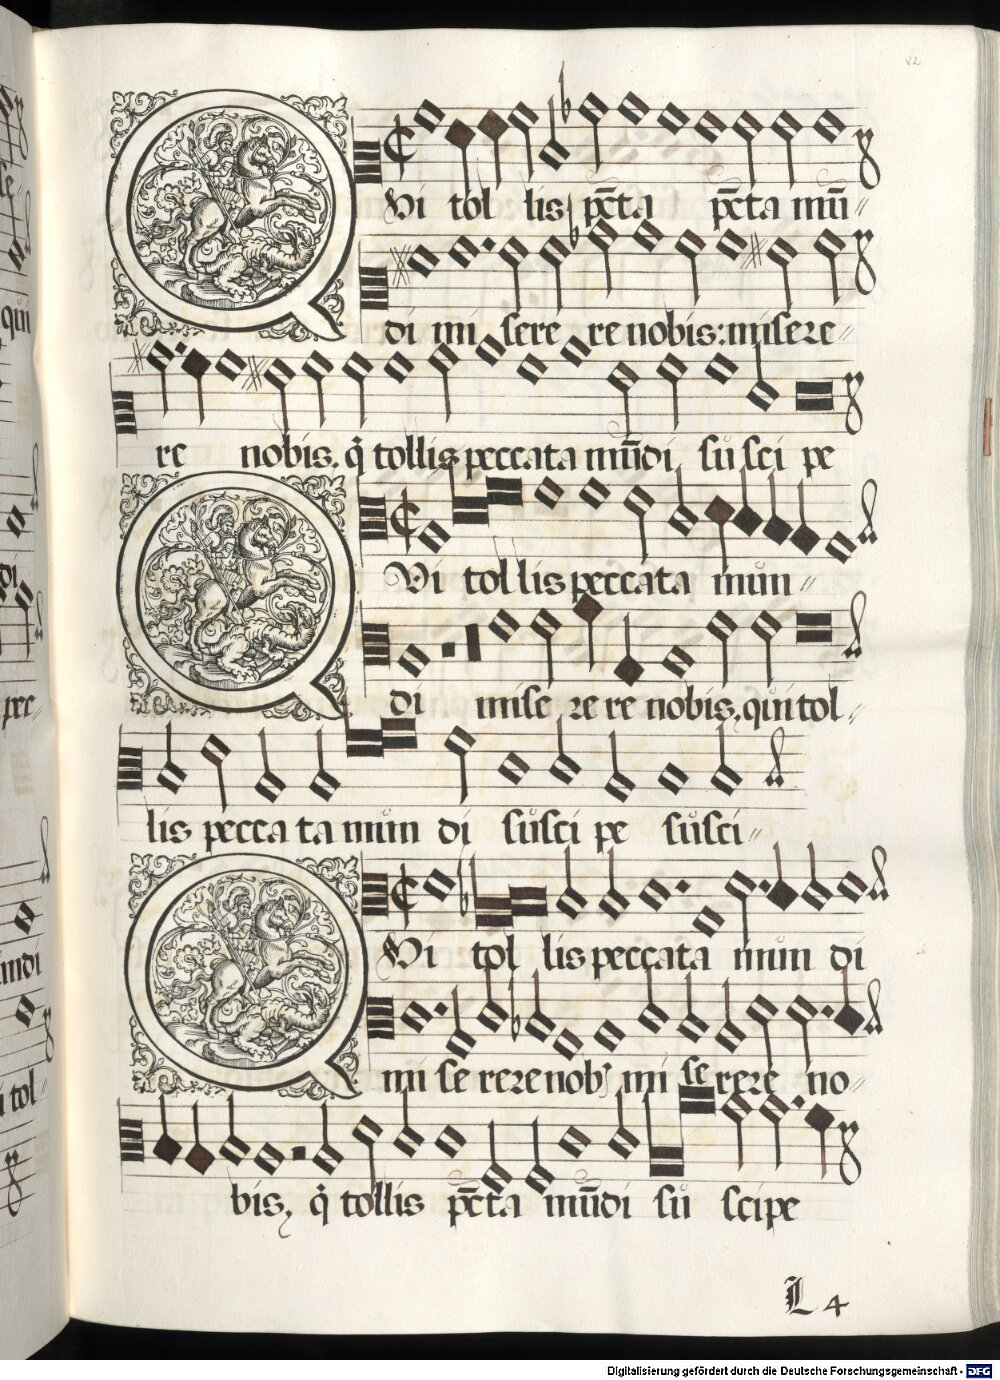 82
Qui tol lis pc̄ta pc̄ta mū
di mi sere re nobis: misere
re nobis, q̇ tollis peccata mūdi, su sci pe
Qui tol lis peccata mun
di mise re re nobis, qui tol
lis pecca ta mun di susci pe susci
Qui tol lis peccata mun di
mi se rere nob' mi se rere no
bis, q̇ tollis pc̄ta mūdi su scipe
L 4
Digitalisierung gefördert durch die Deutsche Forschungsgemeinschaft - DFG
qui
pec
mundi
i tol